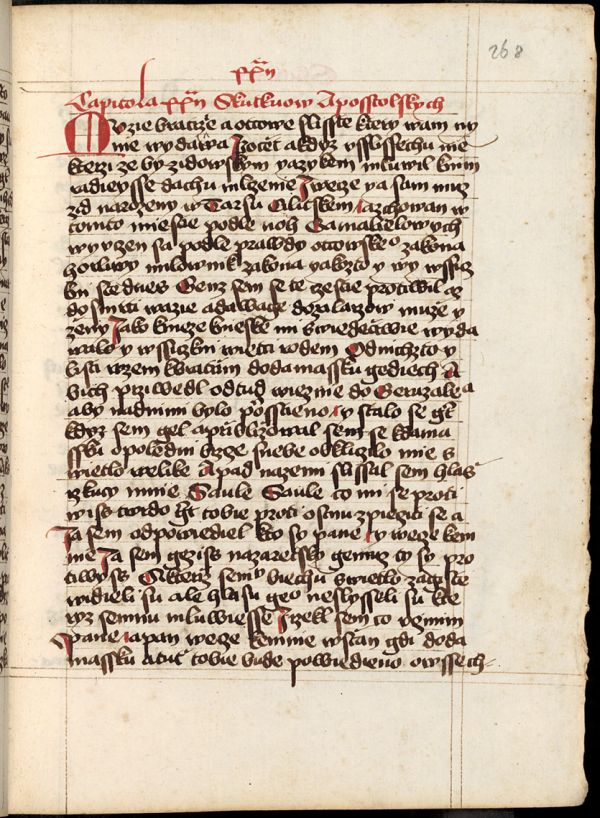 268
xxii
Capitola xxii Skutkuow Aposstolskych
Muzie bratrzie a otcowe slisste ktery wam ny
nie wydawa Izocet a kdyz vslissechu nie
kterzi ze by zidowskym yazykem mluwil k nim
radieysse dachu mlczenie J wecze ya sam muz
zid narozeny w Tarsu Cilitskem zachowan w
tomto miestie podle noh Gamalielowych
wyuczen sa podle prawdy otcowskeo zakona
horliwy milownik zakona yakzto y wy wssicz
kni ste dnes Genz sem se te czestie protiwil az
do smrti wazie a dawage do zalarzow muze y
zeny Jako knieze knieske mi swiedectwie wyda
walo y wssiczkni wietti rodem Od nichzto y
listi wzem k bratrim do damassku gediech A
bich przywedl odtud wieznie do Geruzalea
aby nad nimi bylo pomsstieno y stalo se gt
kdyz sem gel a priblizowal sem se k dama
ssku o poledni brzge s nebe obkliczilo mie s
wietlo welike A pad na zemi slissal sem hlas
rzkucy mnie Saule Saule co mi se proti
wiss twrdo gt tobie proti ostnu zpieciti se a
Ja sem odpowiediel kto sy pane y wecze kem
nie Ja sem geziss nazaretsky gemuz ty sy pro
tiwyss A kterz semnu biechu swietlo zagiste
widieli su ale hlasu geo neslysseli su kte
ryz semnu mluwiesse J rzekl sem co vcinim
pane a pan wecze kemnie wstan gdi do da
massku a tut tobie bude powiedieno o wssech